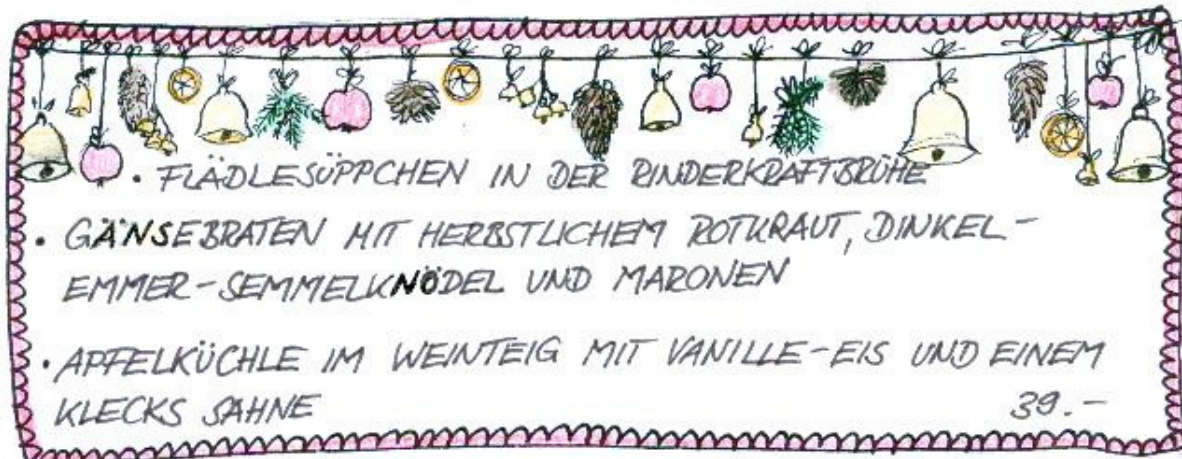 • FLÄDLESÜPPCHEN IN DER RINDERKRAFTBRÜHE
• GÄNSEBRATEN MIT HERBSTLICHEM ROTKRAUT, DINKEL-
EMMER-SEMMELKNÖDEL UND MARONEN
• APFELKÜCHLE IM WEINTEIG MIT VANILLE-EIS UND EINEM
KLECKS SAHNE 39.-